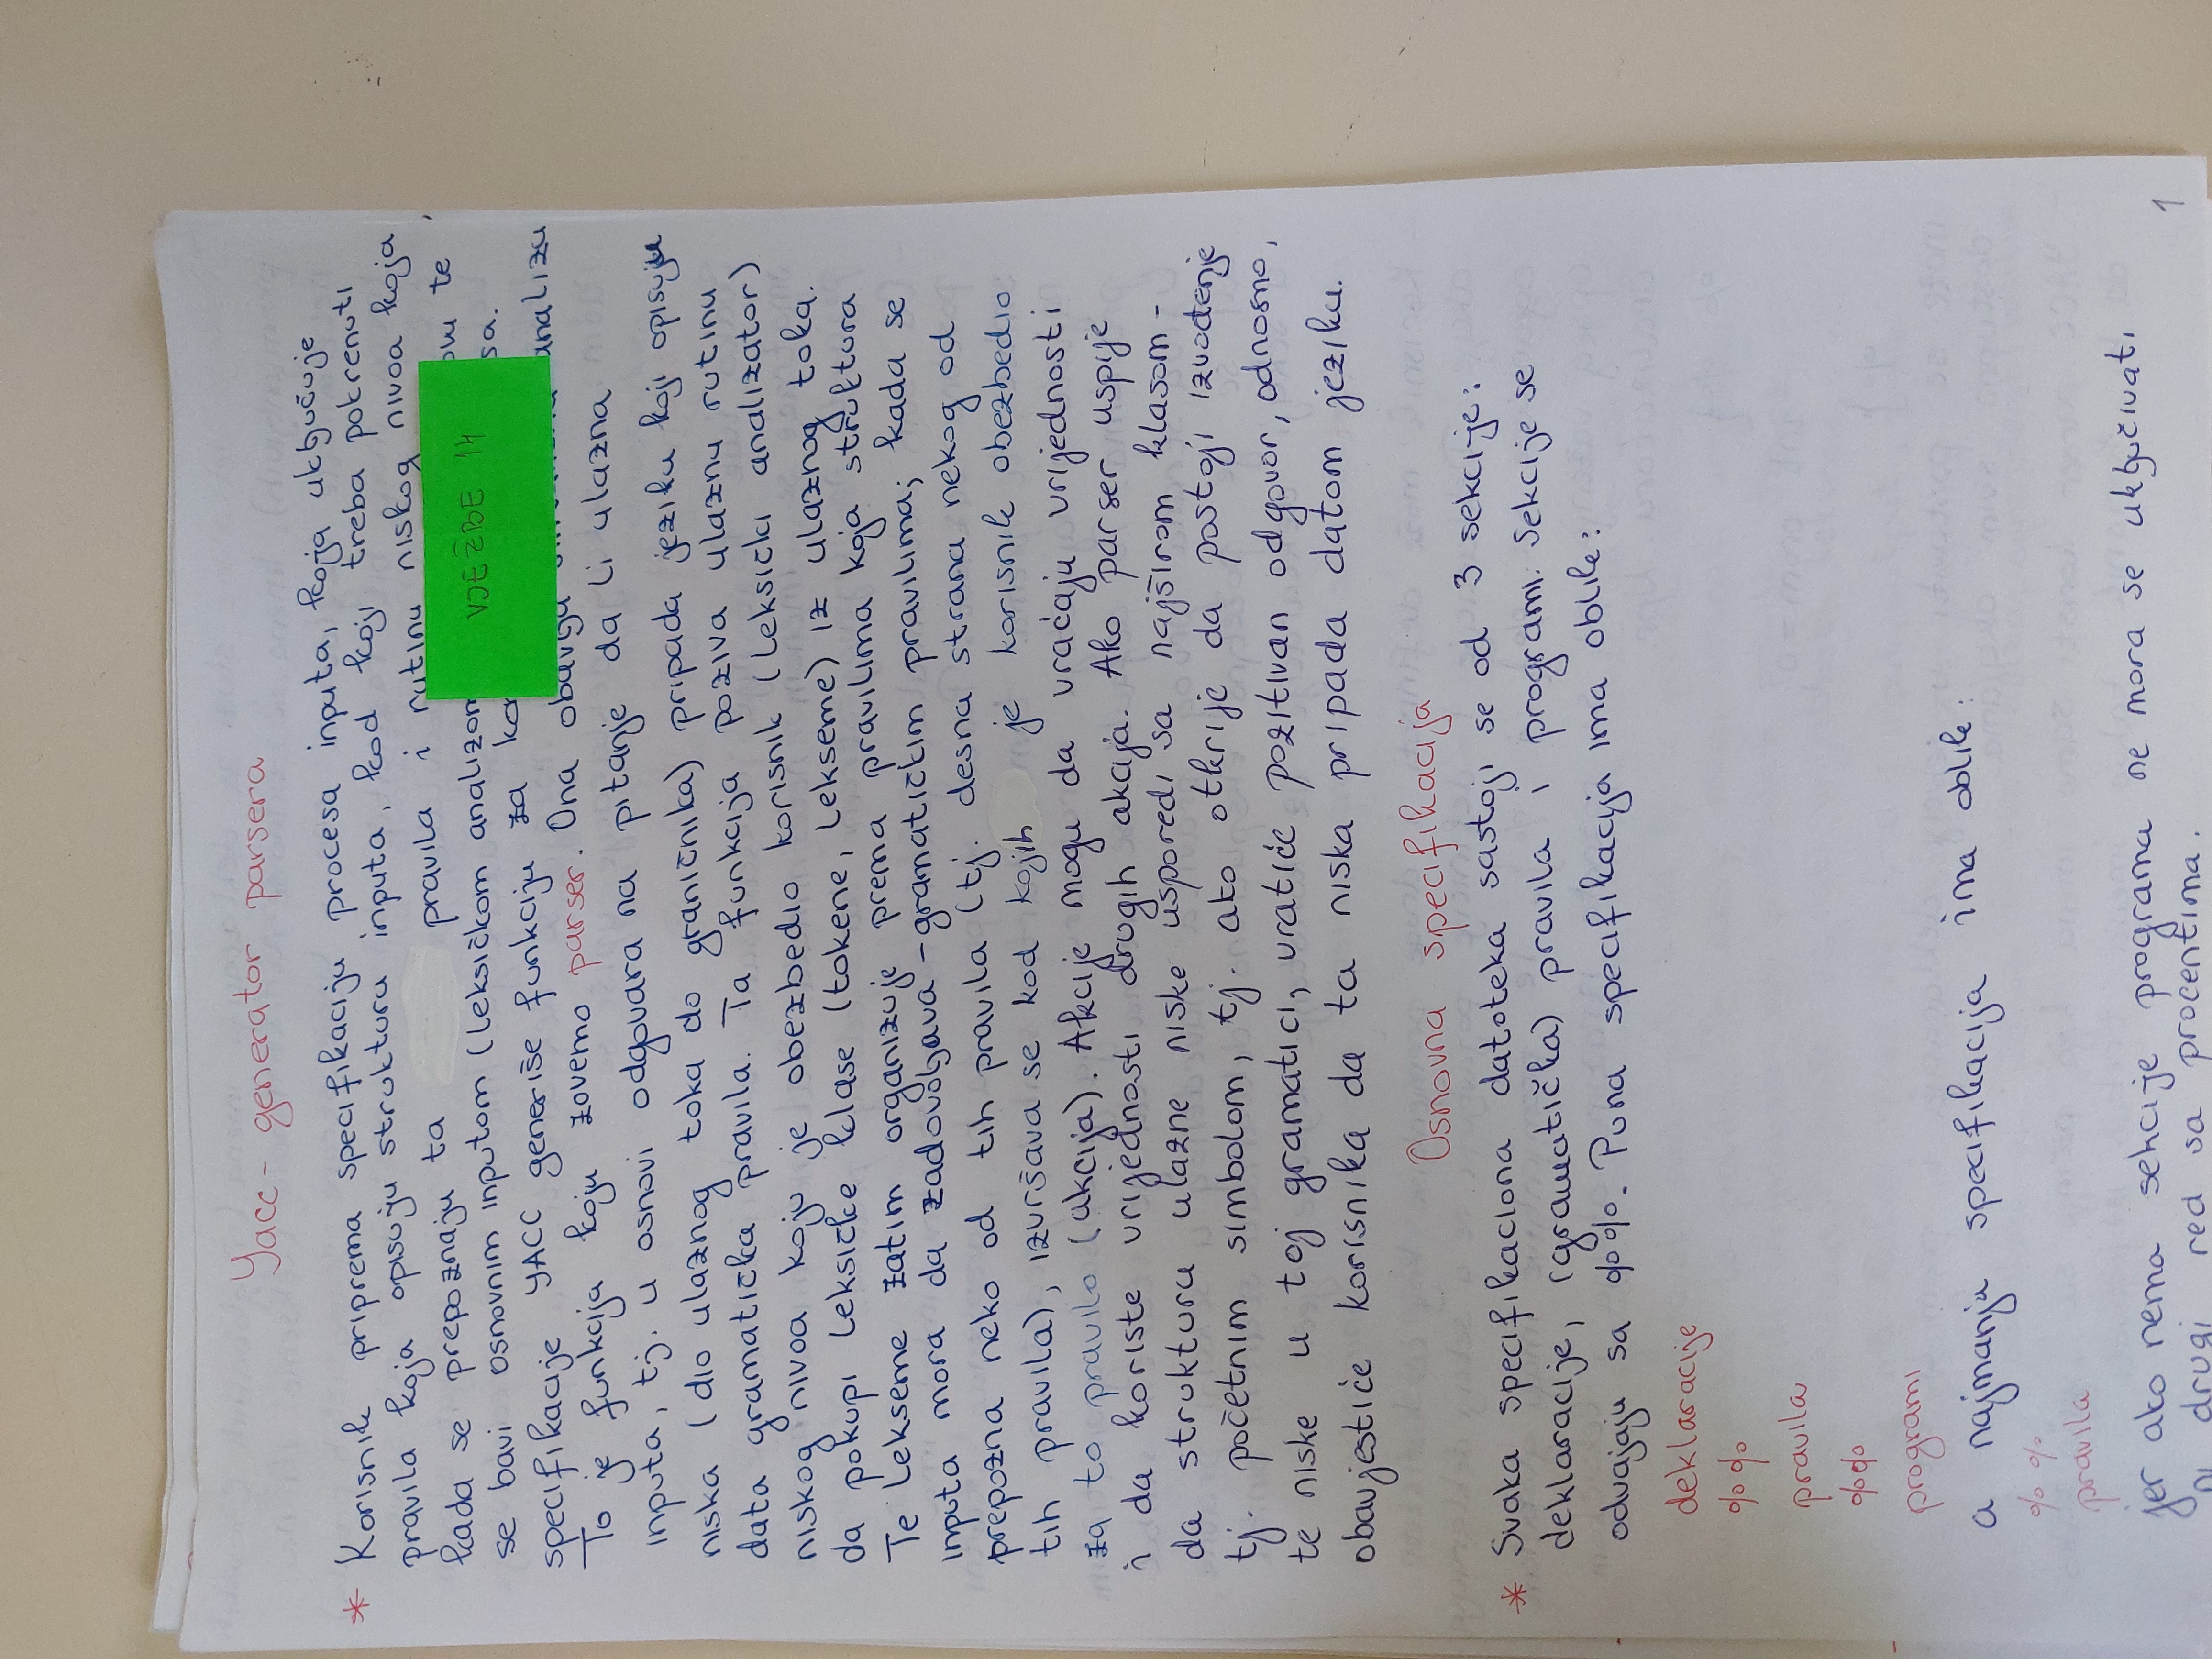 Yacc - generator parsera
* Korisnik priprema specifikaciju procesa inputa, koja uključuje
pravila koja opisuju strukturu inputa, kod koji treba pokrenuti
kada se prepoznaju ta pravila i rutinu niskog nivoa koja
se bavi osnovnim inputom (leksičkom analizom te
VJEŽBE 14
specifikacije YACC generiše funkciju za
To je funkcija koju zovemo parser. Ona obavlja analizu
inputa, tj. u osnovi odgovara na pitanje da li ulazna
niska (dio ulaznog toka do graničnika) pripada jeziku koji opisuju
data gramatička pravila. Ta funkcija poziva ulaznu rutinu
niskog nivoa koju je obezbedio korisnik (leksički analizator)
da pokupi leksičke klase (tokene, lekseme) iz ulaznog toka.
Te lekseme zatim organizuje prema pravilima koja struktura
inputa mora da zadovoljava - gramatičkim pravilima; kada se
prepozna neko od tih pravila (tj. desna strana nekog od
tih pravila), izvršava se kod kojih je korisnik obezbedio
za to pravilo (akcija). Akcije mogu da vraćaju vrijednosti
i da koriste vrijednosti drugih akcija. Ako parser uspije
da strukturu ulazne niske usporedi sa najširom klasom -
tj. početnim simbolom, tj. ako otkrije da postoji izvođenje
te niske u toj gramatici, vratiće pozitivan odgovor, odnosno,
obavjestiće korisnika da ta niska pripada datom jeziku.
Osnovna specifikacija
* Svaka specifikaciona datoteka sastoji se od 3 sekcije:
deklaracije, (gramatička) pravila i programi. Sekcije se
odvajaju sa %%. Puna specifikacija ima oblik:
deklaracije
%%
pravila
%%
programi
a najmanja specifikacija ima oblik:
%%
pravila
jer ako nema sekcije programa ne mora se uključivati
ni drugi red sa procentima.
1